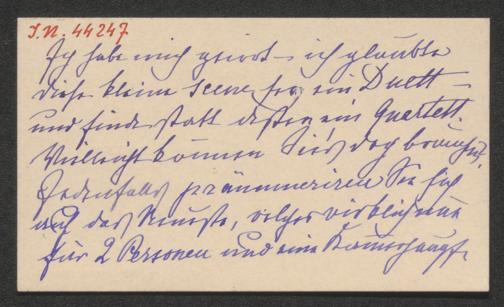 I.N. 44247
Ich habe mich geirrt – ich glaubte
diese kleine Scene sei ein Duett –
und finde statt dessen ein Quartett.
Vielleicht können Sie's doch brauchen,
Jedenfalls pränumeriren Sie sich
auf das Neueste, welches wirklich nur
für 2 Personen und eine